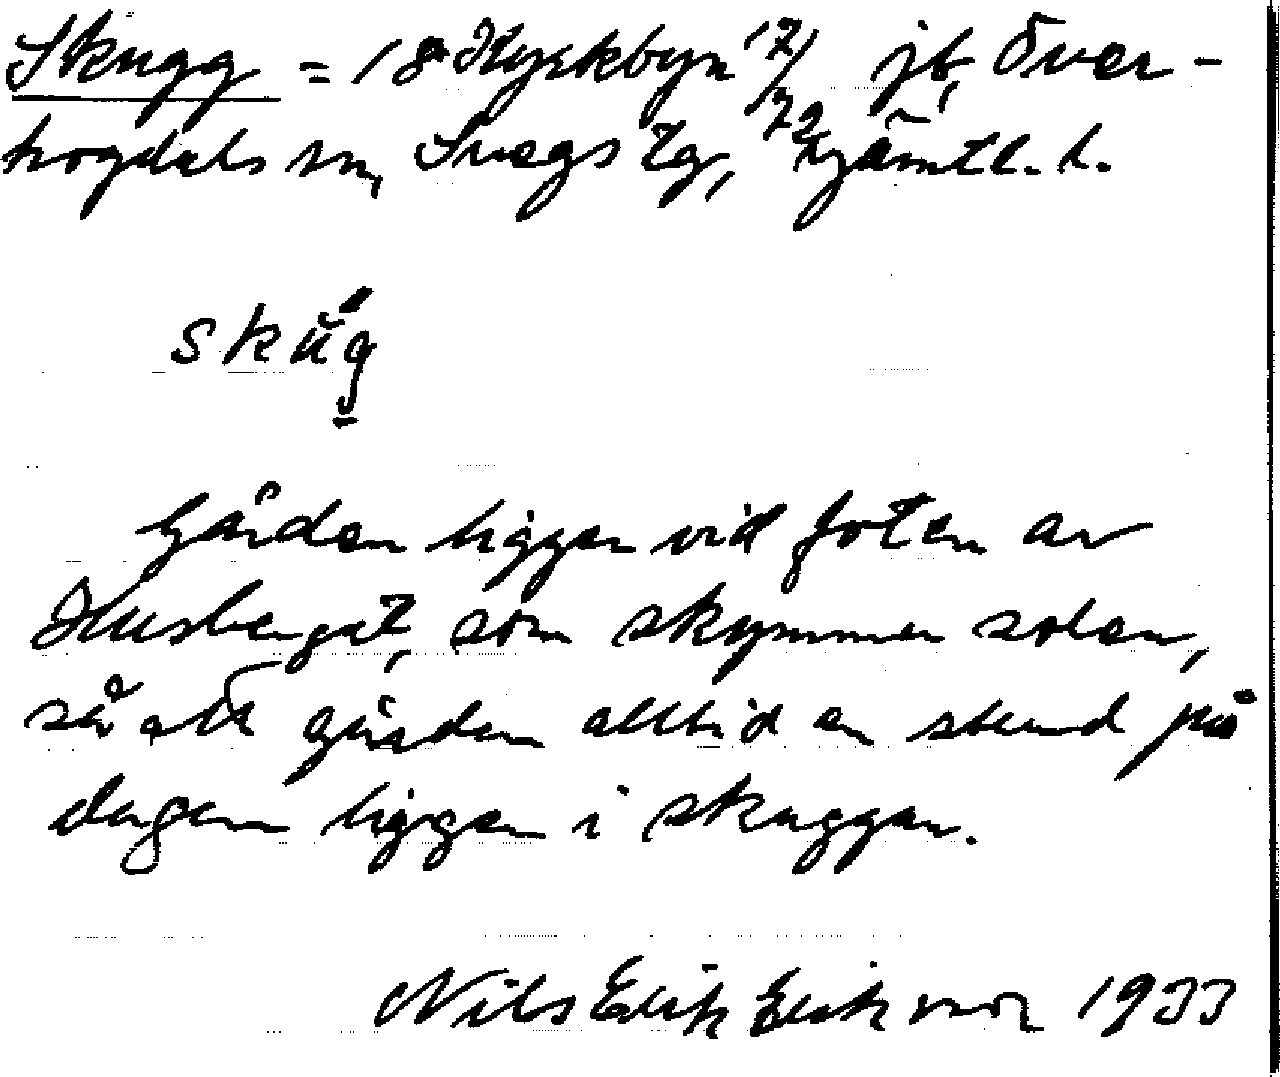 Skugg = 18 Kyrkbyn 17/72 jb, Över-
hogdals sn, Svegs tg, Jämtl. l.
skŭg
Gården ligger vid foten av
Husberget, som skymmer solen,
så att gården alltid en stund på
dagen ligger i skuggan.
Nils Erik Eriksson 1933